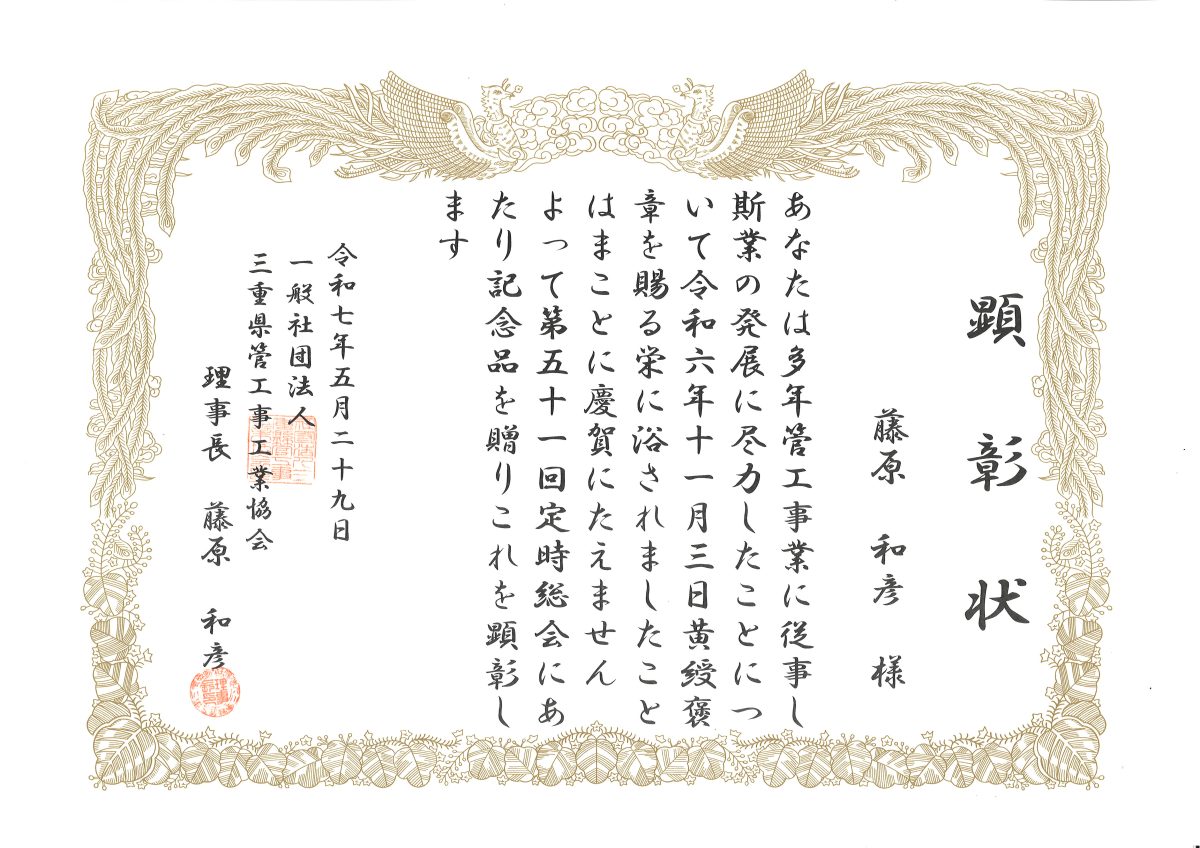 顕彰状
藤原 和彦 様
あなたは多年管工事業に従事し
斯業の発展に尽力したことにつ
いて令和六年十一月三日黄綬褒
章を賜る栄に浴されましたこと
はまことに慶賀にたえません
よって第五十一回定時総会にあ
たり記念品を贈りこれを顕彰し
ます
令和七年五月二十九日
一般社団法人
三重県管工事工業協会
理事長 藤原 和彦